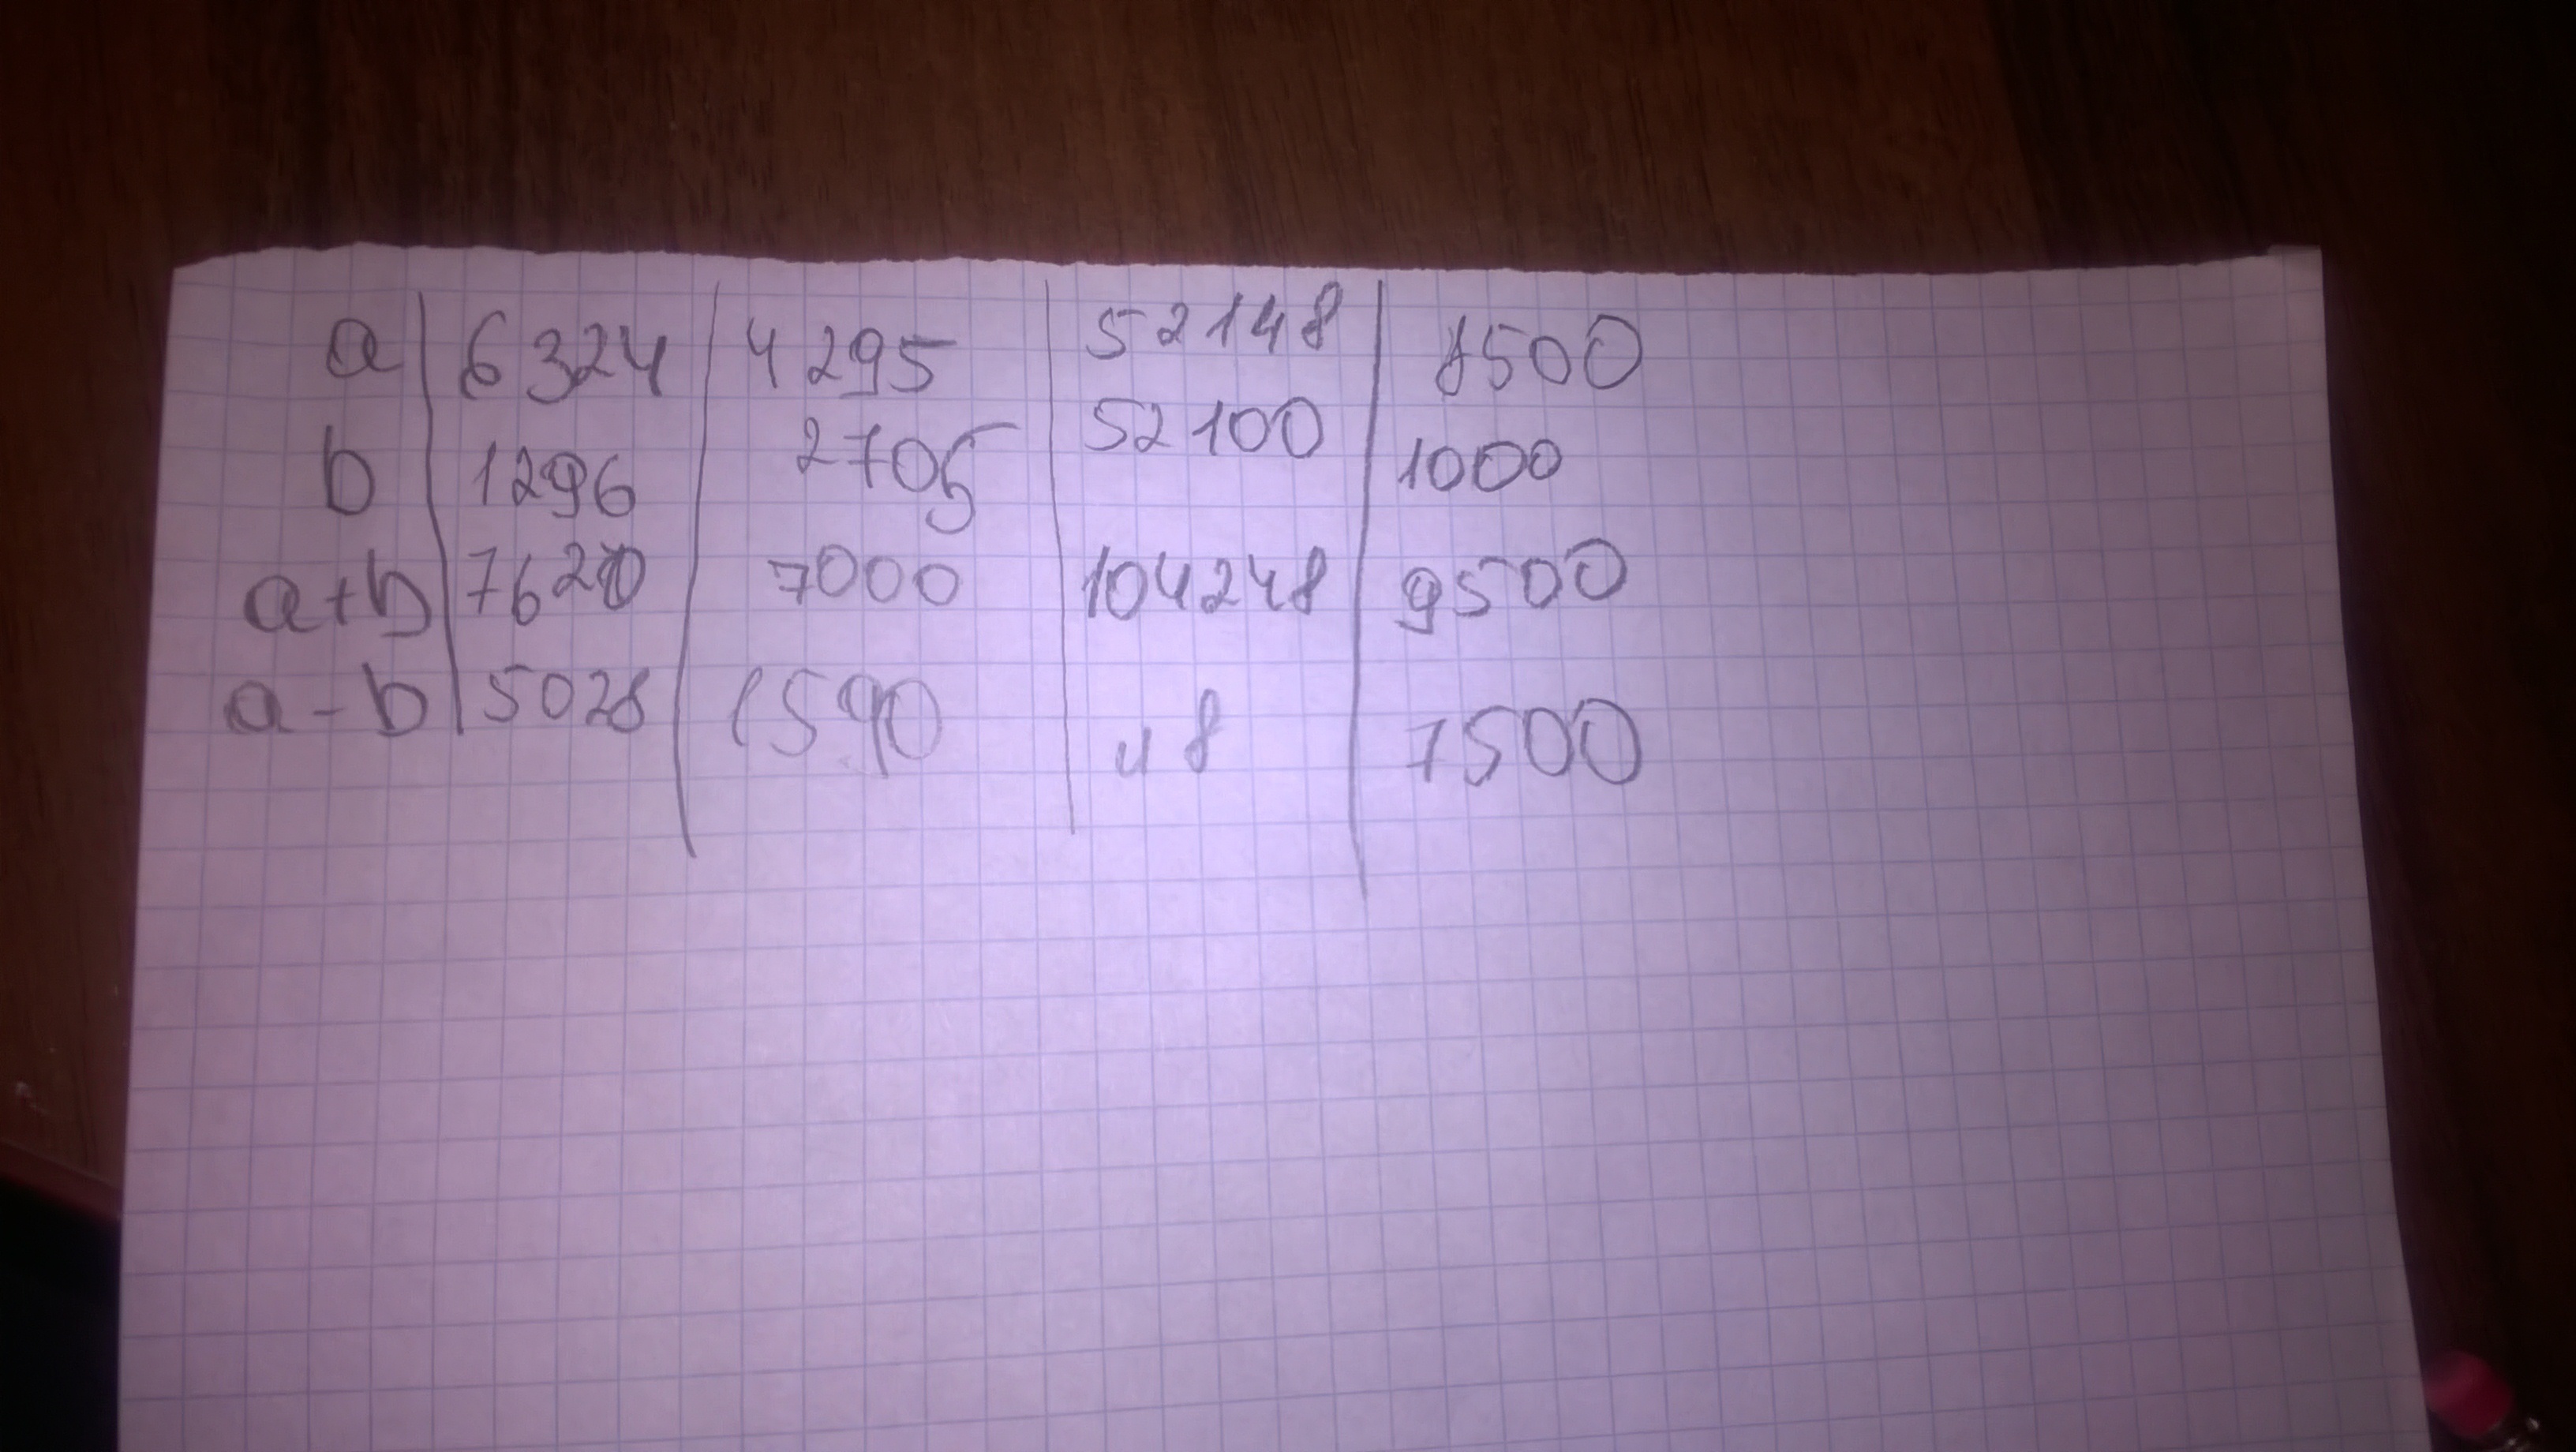 a | 6324 | 4295 | 52148 | 8500
b | 1296 | 2705 | 52100 | 1000
a+b | 7620 | 7000 | 104248 | 9500
a-b | 5028 | 1590 | 48 | 7500